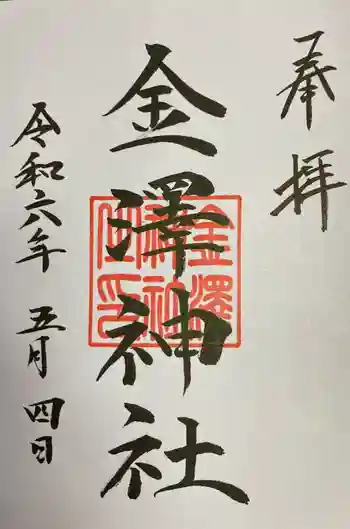 奉拝
金澤神社
金澤
神社
之印
令和六年 五月 四日